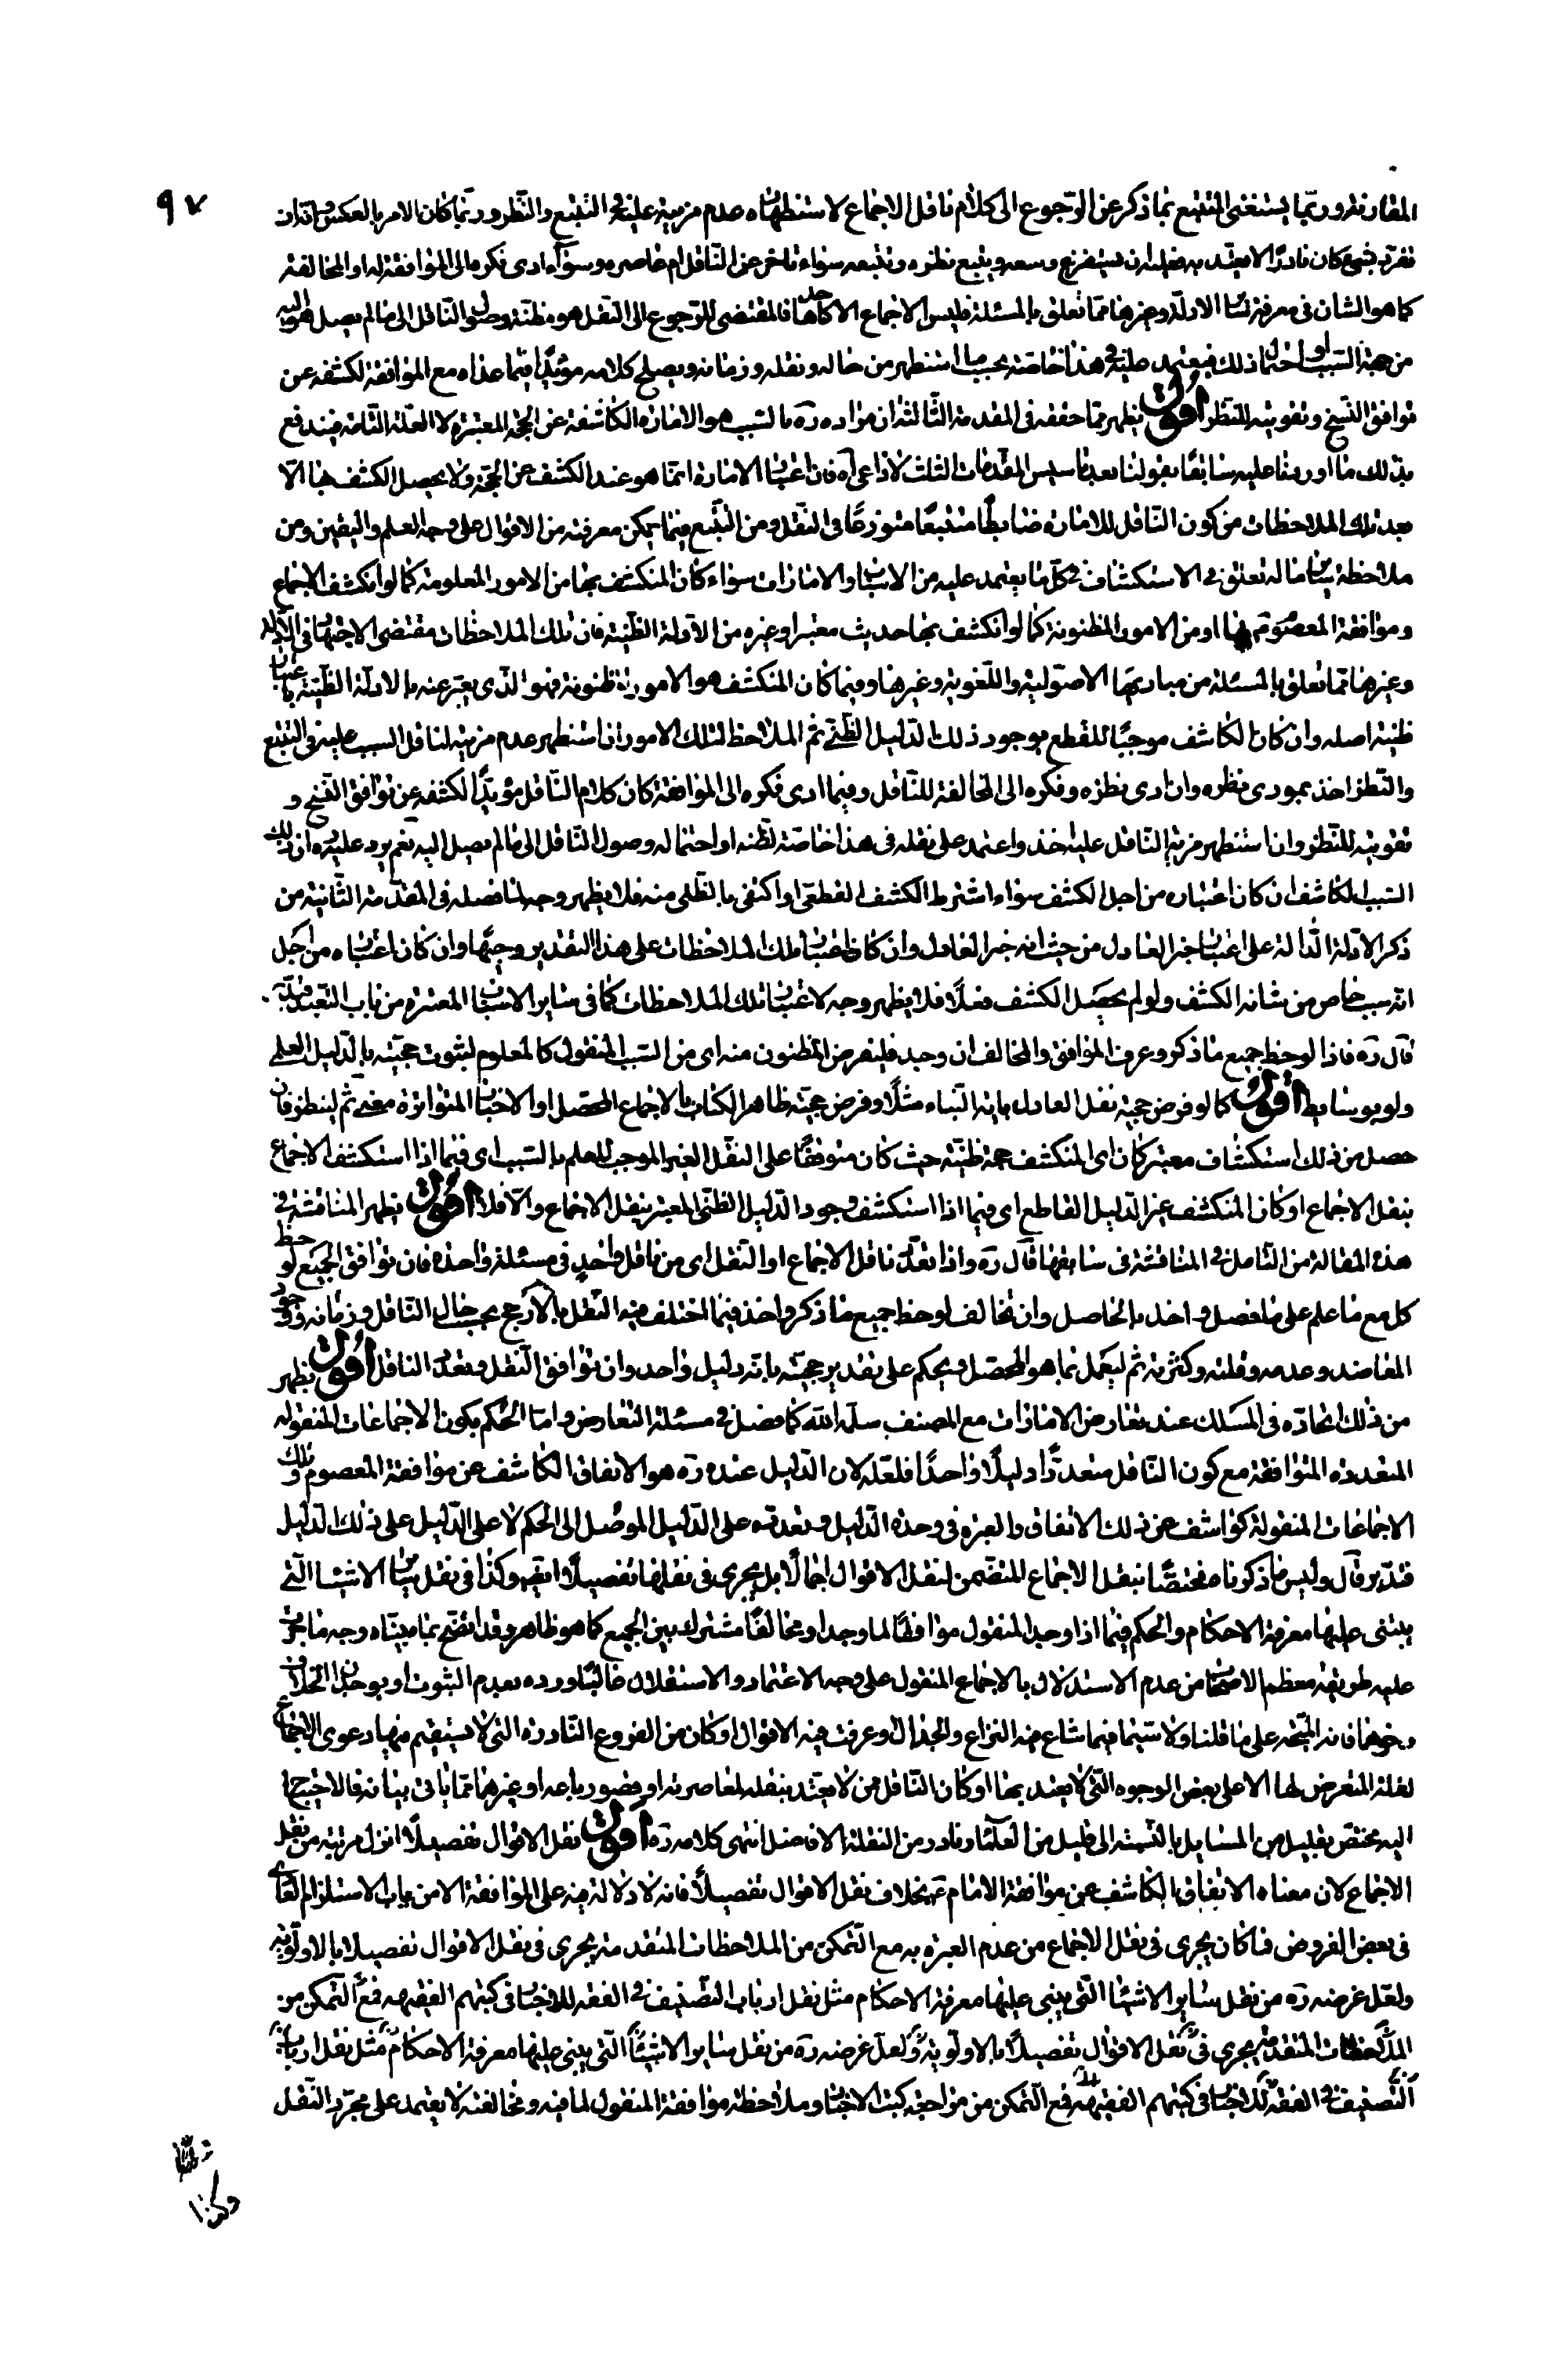 ٩٧
المقارنة وربّما يستغنى المتتبع بما ذكر عن الرّجوع الى كلام ناقل الاجماع لاستظهاره عدم مزيته عليه فى التتبع والنّظر وربّما كان الامر بالعكس وانه ان
تفرّد بشئ كان نادرًا لا يعتد به فعليه ان يستفرغ وسعه ويتبع نظره وتتبعه سواء تاخر عن النّاقل ام عاصره وسواء ادى فكره الى الموافقة له او المخالفة
كما هو الشان فى معرفة سائر الادلّة وغيرها ممّا تعلق بالمسئلة فليس الاجماع الا كاحدها فالمقتضى للرّجوع الى النقل هو مظنّة وصول النّاقل الى ما لم يصل هو اليه
من جهة السّبب او احتمال ذلك فيعتمد عليه فى هذا خاصّة بحسب ما استظهر من حاله ونقله وزمانه ويصلح كلامه مؤيّدًا فيما عداه مع الموافقة لكشفه عن
توافق النّسخ وتقويته للنّظر اقول يظهر ممّا حققه فى المقدمة الثّالثة ان مراده ره بالسّبب هو الامارة الكاشفة عن الحجّة المعتبرة لا العلّة التّامّة فيندفع
بذلك ما اوردنا عليه سابقًا بقولنا بعد تاسيس المقدمات الثلث لا داعى آه فان اعتبار الامارة انّما هو عند الكشف عن الحجّة ولا يحصل الكشف بها الّا
بعد تلك الملاحظات من كون النّاقل للامارة ضابطًا متتبعًا متورعًا فى النّقل ومن التّتبع فيما يمكن معرفته من الاقوال على وجه العلم واليقين ومن
ملاحظة سائر ما له تعلق فى الاستكشاف فى كلّ ما يعتمد عليه من الاسباب والامارات سواء كان المنكشف بها من الامور المعلومة كما لو انكشف الاجماع
وموافقة المعصوم بها او من الامور المظنونة كما لو انكشف بها حديث معتبر او غيره من الادلة الظنّية فان تلك الملاحظات مقتضى الاجتهاد فى الادلة
وغيرها ممّا تعلق بالمسئلة من مباديها الاصوليّة واللّغوية وغيرها وفيما كان المنكشف هو الامور المظنونة فهو الّذى يعبّر عنه بالادلة الظنّية باعتبار
ظنّية اصله وان كان الكاشف موجبًا للقطع بوجود ذلك الدّليل الظّنى ثم الملاحظ لتلك الامور ان استظهر عدم مزيته لناقل السبب عليه فى التتبع
والنّظر اخذ بمودى نظره وان ادى نظره وفكره الى المخالفة للنّاقل وفيما ادى فكره الى الموافقة كان كلام النّاقل مؤيّدًا لكشفه عن توافق النّسخ و
تقويته للنّظر وان استظهر مزية النّاقل عليه اخذ واعتمد على نقله فى هذا خاصّة لظنّه او احتماله وصول النّاقل الى ما لم يصل اليه نعم يرد عليه ره ان ذلك
السّبب الكاشف ان كان اعتباره من اجل الكشف سواء اشترط الكشف القطعى او اكتفى بالظنّى منه فلا يظهر وجه لما فصله فى المقدّمة الثّانية من
ذكر الادلة الدّالة على اعتبار خبر العادل من حيث انه خبر العادل وان كان لاعتبار تلك الملاحظات على هذا التقدير وجيهًا وان كان اعتباره من اجل
انّه سبب خاص من شانه الكشف ولو لم يحصل الكشف فعلًا فلا يظهر وجه لاعتبار تلك الملاحظات كما فى سائر الاسباب المعتبرة من باب التعبد فتدبّر
قال ره فاذا لوحظ جميع ما ذكر وعرف الموافق والمخالف ان وجد فليفرض المظنون منه اى من السّبب المنقول كالمعلوم لثبوت حجّيته بالدّليل العلمى
ولو بوسايط اقول كما لو فرض حجيّة نقل العادل باية النّباء مثلًا وفرض حجيّة ظاهر الكتاب بالاجماع المحصّل او الاخبار المتواترة معنى ثم لينظر فان
حصل من ذلك استكشاف معتبر كان اى المنكشف حجة ظنّية حيث كان متوقفًا على النقل الغير الموجب للعلم بالسّبب اى فيما اذا استكشف الاجماع
بنقل الاجماع او كان المنكشف غير الدّليل القاطع اى فيما اذا استكشف وجود الدّليل الظنّى المعتبر بنقل الاجماع والّا فلا اقول يظهر المناقشة فى
هذه المقالة من التّامل فى المناقشة فى سابقها قال ره واذا تعدّد ناقل الاجماع او النّقل اى من ناقل واحد فى مسئلة واحدة فان توافق الجميع لوحظ
كل مع ما علم على ما فصل واخذ بالحاصل وان تخالف لوحظ جميع ما ذكر واخذ فيما اختلف فيه النّقل بالارجح بحسب حال النّاقل وزمانه ووجود
المعاضد وعدمه وقلته وكثرته ثم ليعمل بما هو المحصّل ويحكم على تقدير حجيّته بانّه دليل واحد وان توافق النّقل وتعدّد النّاقل اقول يظهر
من ذلك اتحاده فى المسلك عند تعارض الامارات مع المصنف سلّمه الله كما فصّل فى مسئلة التّعارض وامّا الحكم بكون الاجماعات المنقولة
المتعددة المتوافقة مع كون النّاقل متعددًا دليلًا واحدًا فلعلّه لان الدّليل عنده ره هو الاتفاق الكاشف عن موافقة المعصوم وتلك
الاجماعات المنقولة كواشف عن ذلك الاتفاق والعبرة فى وحدة الدّليل وتعدّده على الدّليل الموصل الى الحكم لا على الدّليل على ذلك الدّليل
فتدبّر قال وليس ما ذكرناه مختصًّا بنقل الاجماع المتضمن لنقل الاقوال اجمالًا بل يجرى فى نقلها تفصيلًا ايضا وكذا فى نقل سائر الاشياء الّتى
يبتنى عليها معرفة الاحكام والحكم فيما اذا وجد المنقول موافقًا لما وجد او مخالفًا مشترك بين الجميع كما هو ظاهر وقد اتضح بما بيّناه وجه ما جرى
عليه طريقة معظم الاصحاب من عدم الاستدلال بالاجماع المنقول على وجه الاعتماد والاستقلال غالبًا ورده بعدم الثبوت او بوجدان الخلاف
ونحوهما فانه المتّجه على ما قلناه ولا سيّما فيما شاع فيه النزاع والجدال او عرفت فيه الاقوال او كان من الفروع النّادرة التى لا يستقيم فيها دعوى الاجماع
لقلة المتعرض لها الا على بعض الوجوه الّتى لا يعتد بها او كان النّاقل ممن لا يعتد بنقله لمعاصرته او قصور باعه او غيرهما ممّا ياتى بيانه فالاحتياج
اليه مختص بقليل من المسايل بالنّسبة الى قليل من العلماء ونادر من النقلة الافاضل انتهى كلامه ره اقول نقل الاقوال تفصيلًا انزل مرتبة من نقل
الاجماع لان معناه الاتفاق الكاشف عن موافقة الامام ع بخلاف نقل الاقوال تفصيلًا فانه لا دلالة فيه على الموافقة الا من باب الاستلزام العادى
فى بعض الفروض فما كان يجرى فى نقل الاجماع من عدم العبرة به مع التّمكن من الملاحظات المتقدمة يجرى فى نقل الاقوال تفصيلا بالاولوية
ولعّل غرضه ره من نقل سائر الاشياء الّتى يبتنى عليها معرفة الاحكام مثل نقل ارباب التّصنيف فى الفقه للاخبار فى كتبهم الفقهية فمع التّمكن من
الملاحظات المتقدمة يجرى فى نقل الاقوال تفصيلًا بالاولوية ولعل غرضه ره من نقل سائر الاشياء الّتى يبتنى عليها معرفة الاحكام مثل نقل ارباب
التّصنيف فى الفقه للاخبار فى كتبهم الفقهية فمع التّمكن من مراجعة كتب الاخبار وملاحظة موافقة المنقول لما فيه ومخالفته لا يعتمد على مجرّد النّقل
وكذا